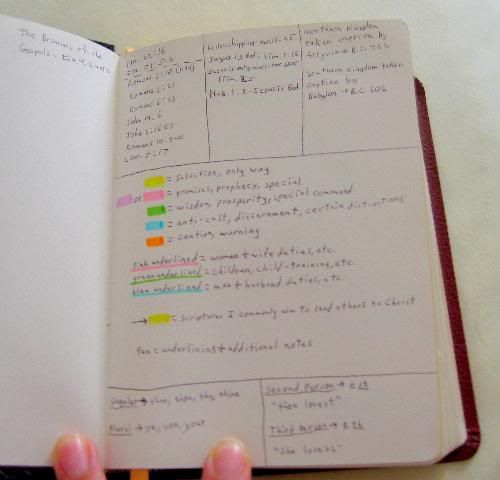 The Promises of the
Gospels -
22:16
Romans
Romans 5:21
Romans 6:23
John 14:6
John 3:16+17
Romans 10:
5:17
Fellowshipping
Jesus is God: 1 Tim. 3:16
1 Tim. 2:5
Heb. 1:8 - Jesus is God
Northern Kingdom
taken captive by
Assyria → B.C. 722
Southern Kingdom taken
captive by
Babylon → B.C. 606
= Salvation, only way
or = promises, prophecy, special
= wisdom, prosperity, special command
= anti-cult, discernment, certain distinctions
= caution, warning
pink underlined = women + wife duties, etc.
green underlined = children, child-training, etc.
blue underlined = men + husband duties, etc.
→ = Scriptures I commonly use to lead others to Christ
Pen = underlining + additional notes
Singular → thou, thee, thy, thine
Plural → ye, you, your
Second Person → est
"thou lovest"
Third Person → eth
"She loveth"